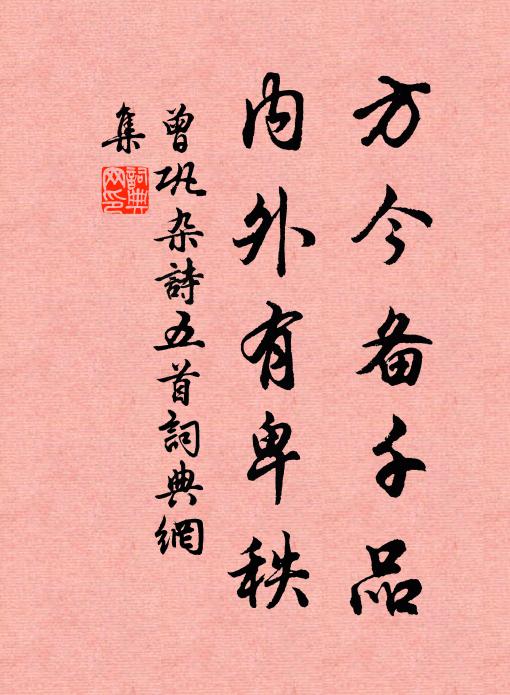 方今备千品
内外有卑秩
曾巩杂詩五首詞典網
集
詞典
网印